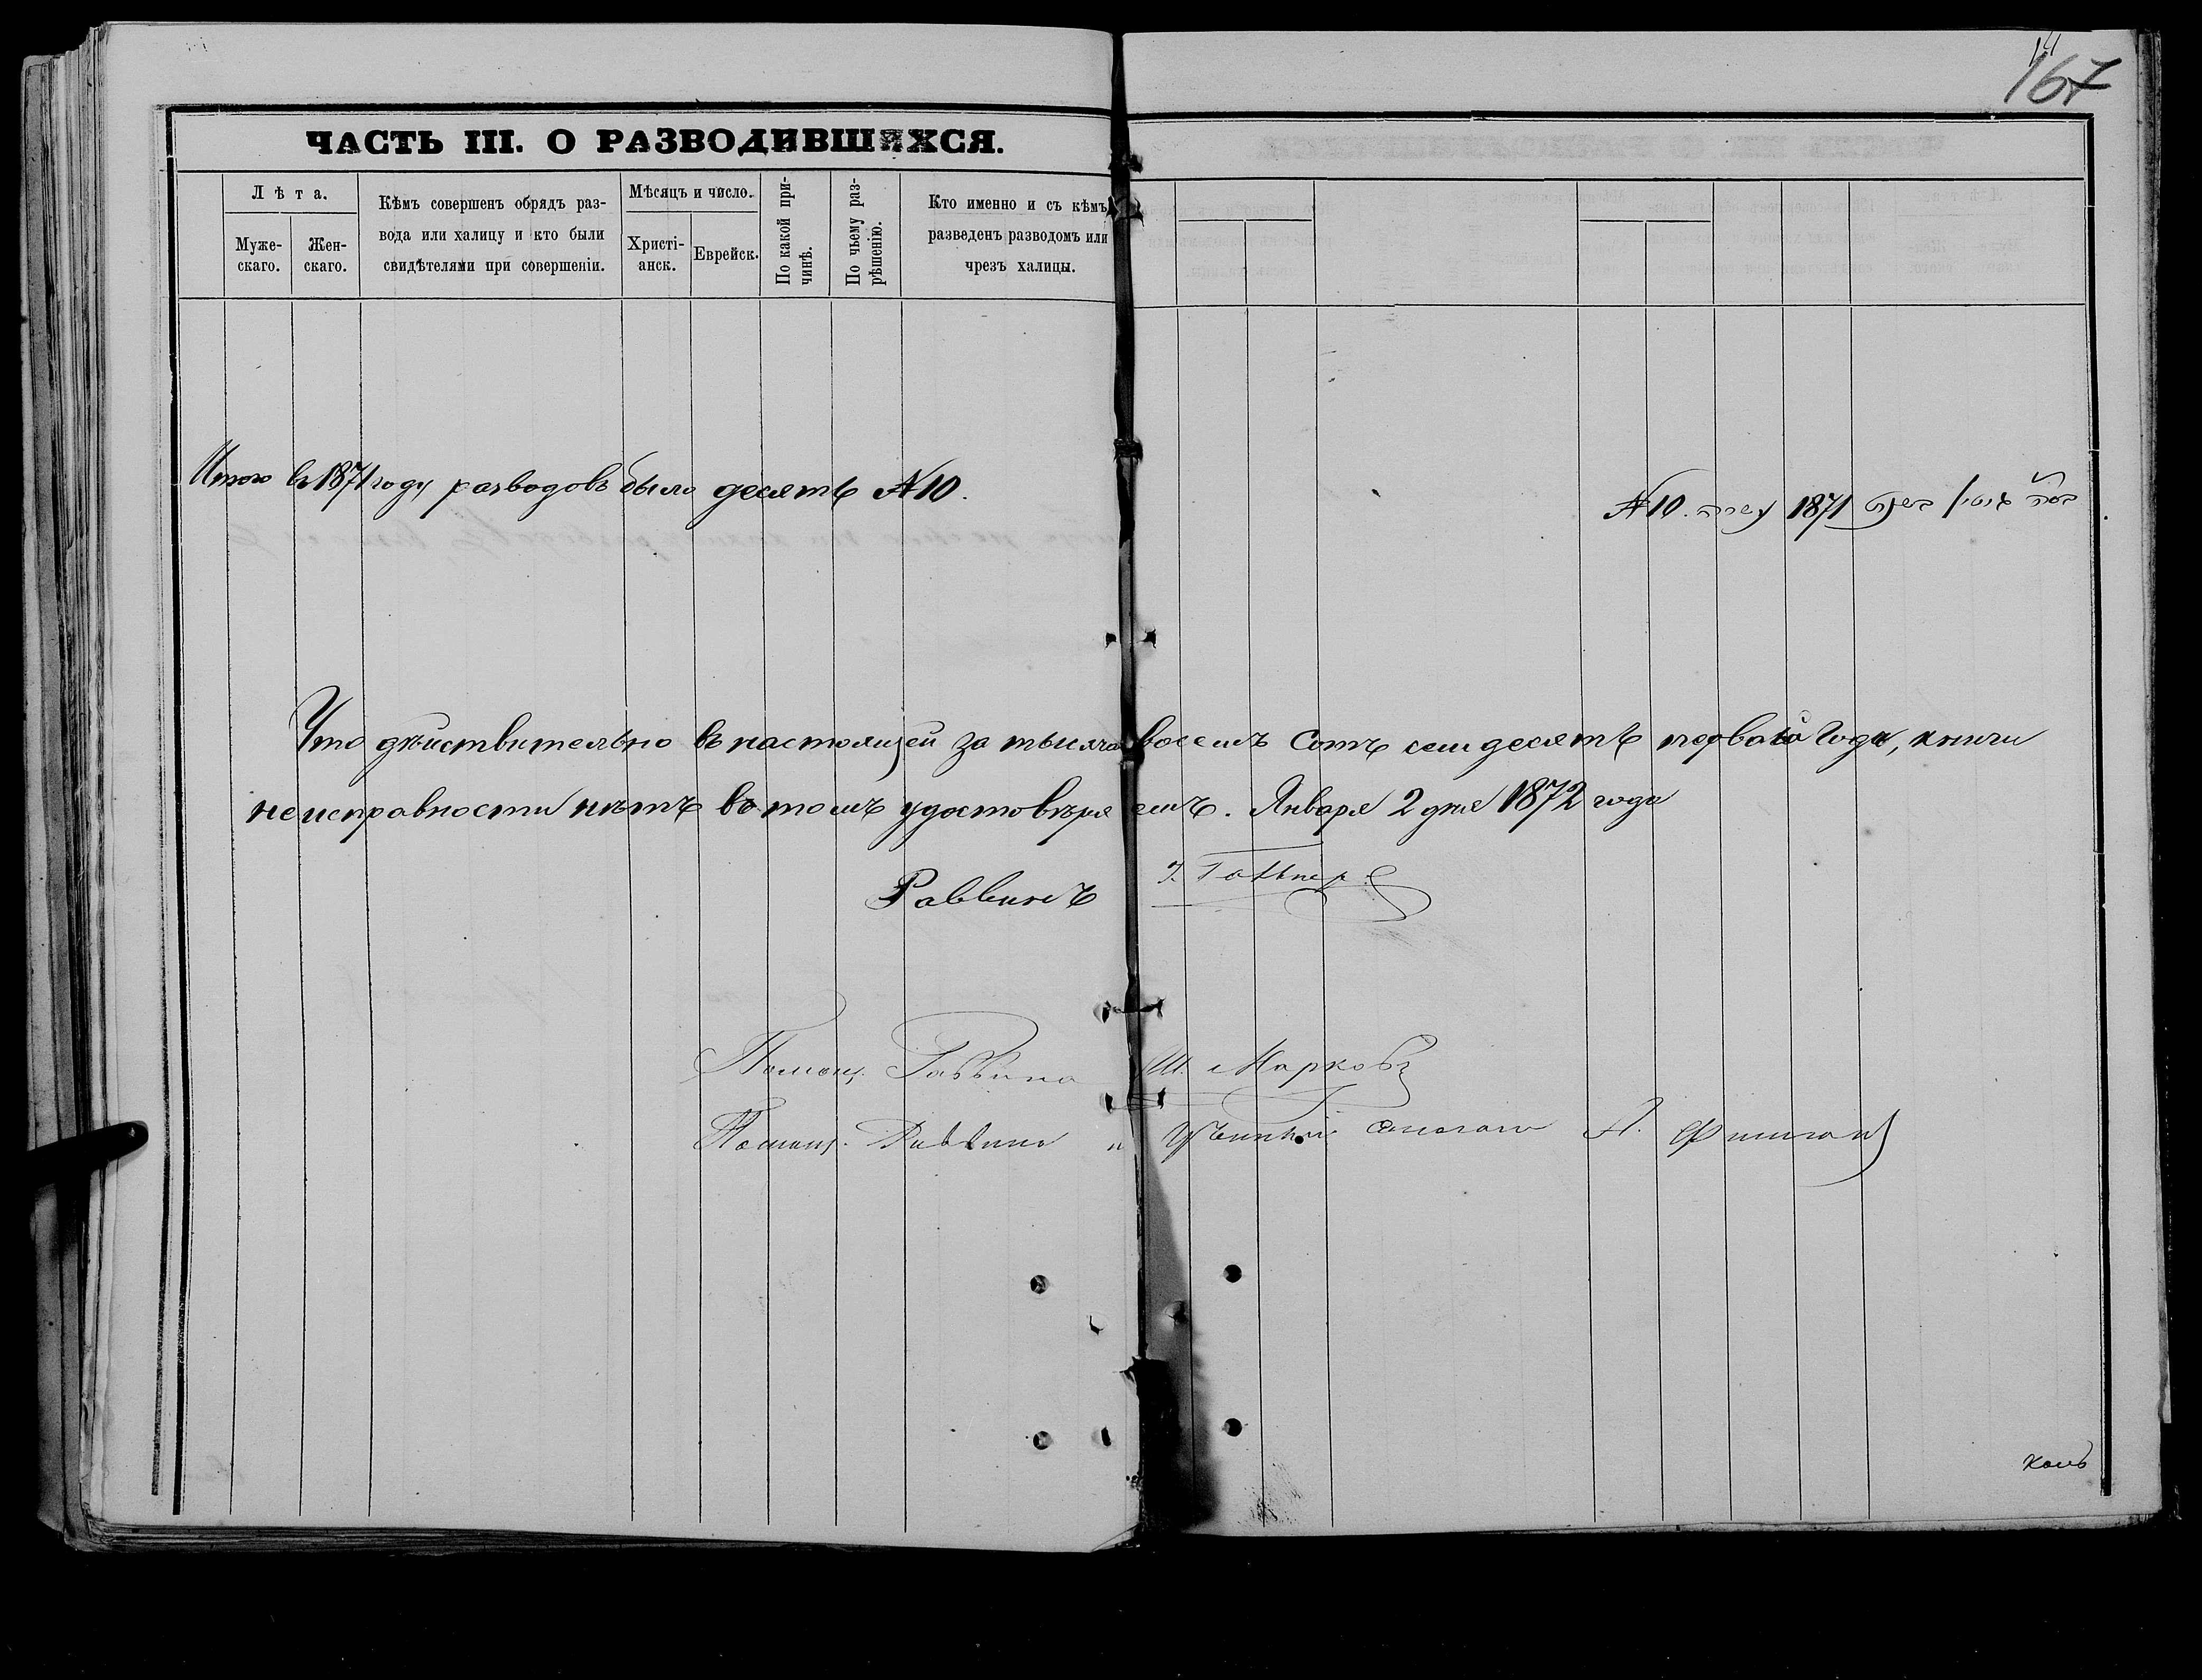 167
ЧАСТЬ III. О РАЗВОДИВШИХСЯ.
Лѣта.
Муже-
скаго.
Жен-
скаго.
Кѣмъ совершенъ обрядъ раз-
вода или халицу и кто были
свидѣтелями при совершеніи.
Мѣсяцъ и число.
Христі-
анск.
Еврейск.
По какой при-
чинѣ.
По чьему раз-
рѣшенію.
Кто именно и съ кѣмъ
разведенъ разводомъ или
чрезъ халицы.
Итого въ 1871 году разводовъ было десять № 10.
№ 10. 1871
Что дѣйствительно въ настоящей за тысяча восемь сотъ семьдесятъ первый годъ, книги
неисправности нѣтъ въ томъ удостовѣряемъ. Января 2 дня 1872 года
Раввинъ
Помощ. Раввина Ш. Марковъ
Помощ. Раввина и А.